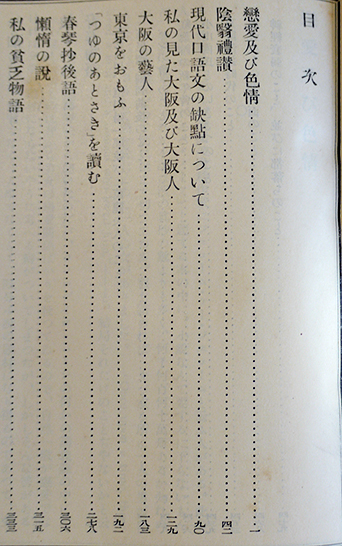 目次
戀愛及び色情……一
陰翳禮讃……四二
現代口語文の缺點について……九〇
私の見た大阪及び大阪人……一二九
大阪の藝人……一八三
東京をおもふ……一九二
「つゆのあとさき」を讀む……二七八
春琴抄後語……三〇六
懶惰の說……三一五
私の貧乏物語……三三三